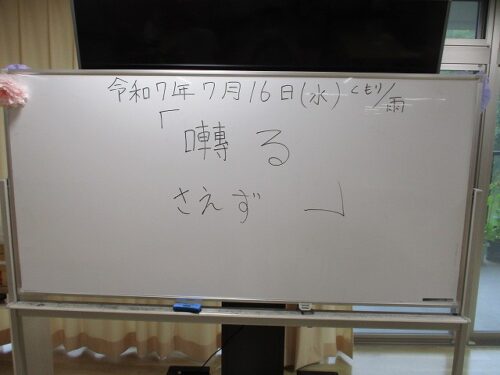 令和7年7月16日(水) くもり/雨
「囀る
さえず 」